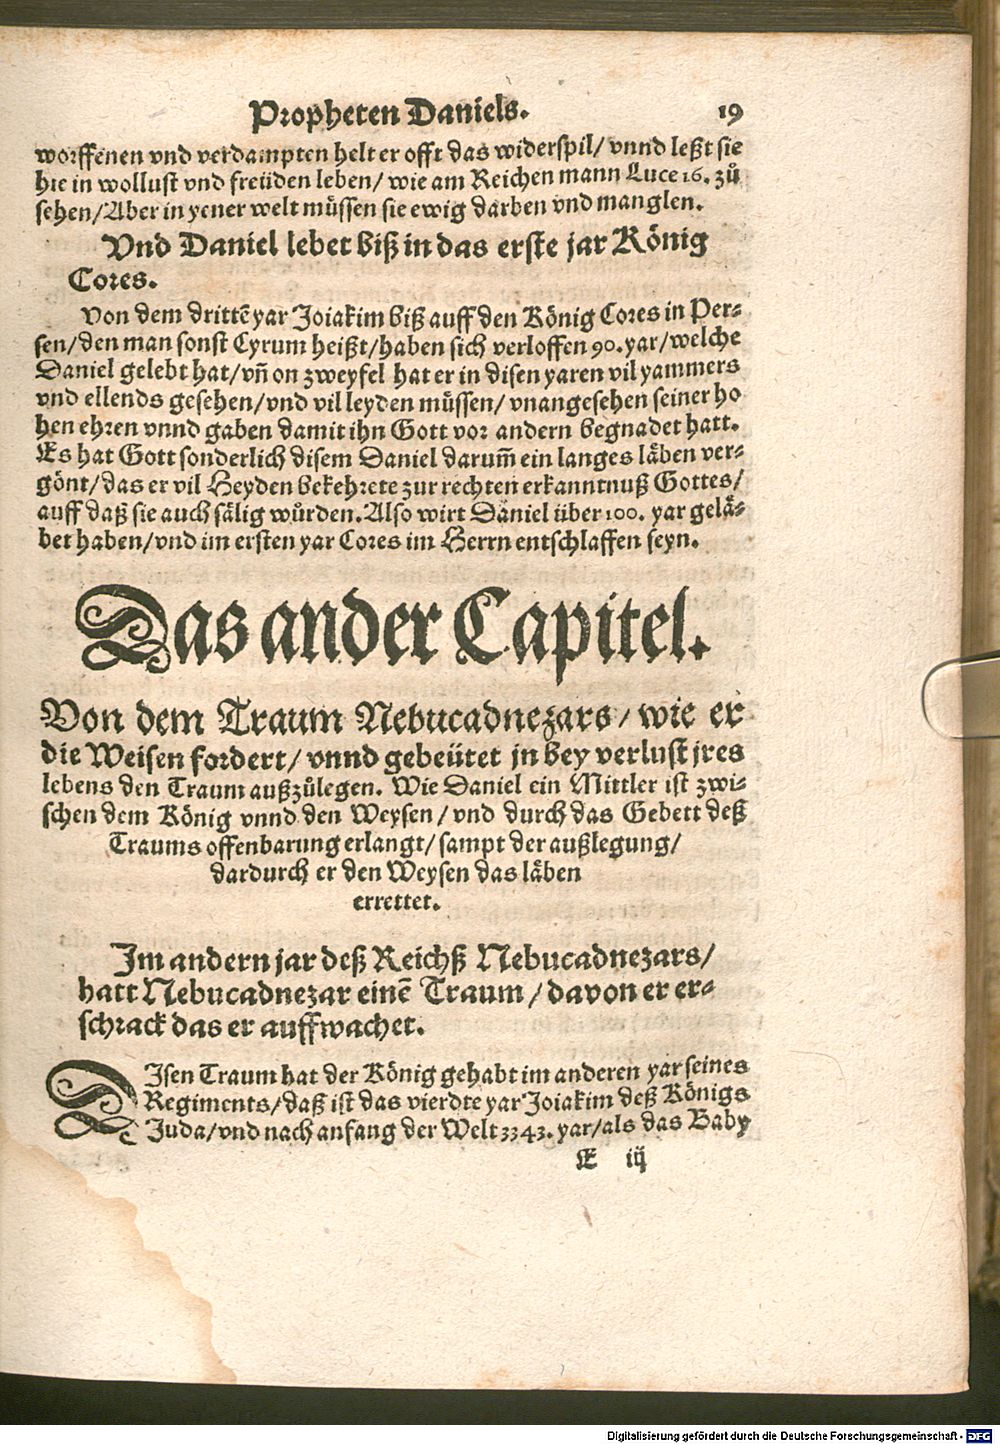 Propheten Daniels. 19
worffenen vnd verdampten helt er offt das widerspil/ vnnd leßt sie
hie in wollust vnd freüden leben/ wie am Reichen mann Luce 16. zů
sehen/ Aber in yener welt müssen sie ewig darben vnd manglen.
Vnd Daniel lebet biß in das erste jar König
Cores.
Von dem drittē yar Joiakim biß auff den König Cores in Per-
sen/ den man sonst Cyrum heißt/ haben sich verloffen 90. yar/ welche
Daniel gelebt hat/ vñ on zweyfel hat er in disen yaren vil yammers
vnd ellends gesehen/ vnd vil leyden müssen/ vnangesehen seiner ho
hen ehren vnnd gaben damit ihn Gott vor andern begnadet hatt.
Es hat Gott sonderlich disem Daniel darum̄ ein langes läben ver-
gönt/ das er vil Heyden bekehrete zur rechten erkanntnuß Gottes/
auff daß sie auch sälig würden. Also wirt Daniel über 100. yar gelä-
bet haben/ vnd im ersten yar Cores im Herrn entschlaffen seyn.
Das ander Capitel.
Von dem Traum Nebucadnezars/ wie er
die Weisen fordert/ vnnd gebeütet jn bey verlust jres
lebens den Traum außzůlegen. Wie Daniel ein Mittler ist zwi-
schen dem König vnnd den Weysen/ vnd durch das Gebett deß
Traums offenbarung erlangt/ sampt der außlegung/
dardurch er den Weysen das läben
errettet.
Im andern jar deß Reichß Nebucadnezars/
hatt Nebucadnezar einē Traum/ davon er er-
schrack das er auffwachet.
DIsen Traum hat der König gehabt im anderen yar seines
Regiments/ daß ist das vierdte yar Joiakim deß Königs
Juda/ vnd nach anfang der Welt 3343. yar/ als das Baby
E iij
Digitalisierung gefördert durch die Deutsche Forschungsgemeinschaft - DFG